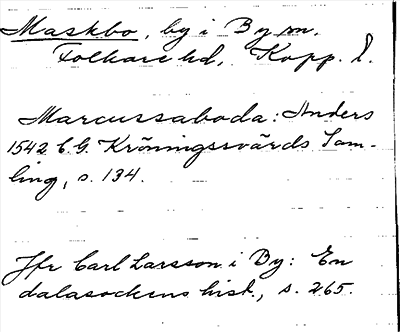 Maskbo, by i By sn.
Folkare hd, Kopp. l.
Marcussaboda: Anders
1542 C.G. Kröningssvärds Sam-
ling, s. 134.
Jfr Carl Larsson i By: En
dalasockens hist., s. 265.